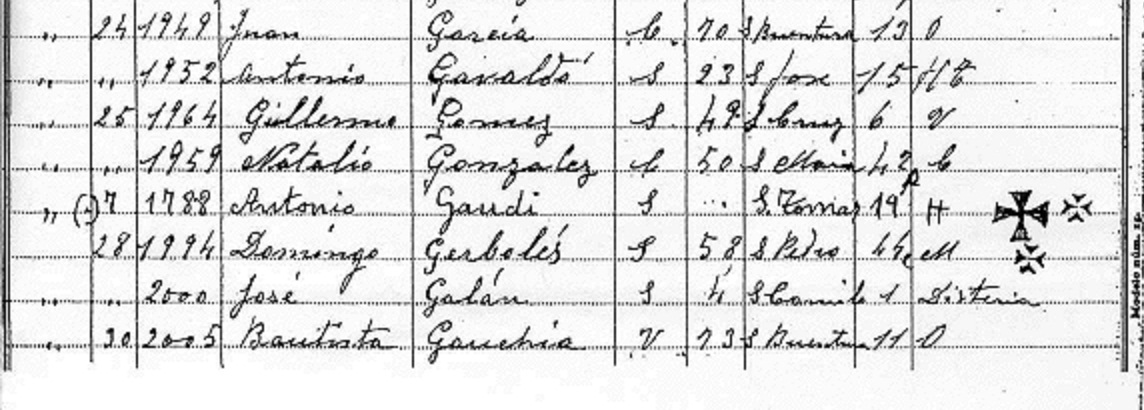 " 24 1949 Juan García C. 70 S Buentura 13 O
" " 1952 Antonio Gavaldó S 23 S Jose 15 H C
" 25 1964 Guillermo Gomez S. 49 S Cruz 6 V
" " 1959 Natalio Gonzalez C 50 S Maia 42 C
" 7 1788 Antonio Gaudi S ... S. Tomas 19 H
28 1994 Domingo Gerbolés S 58 S Pedro 44 M
" " 2000 José Galán S 4 S Camilo 1 Disteria
" 30 2005 Bautista Gauchía V 73 S Buentura 11 O
Modelo núm.